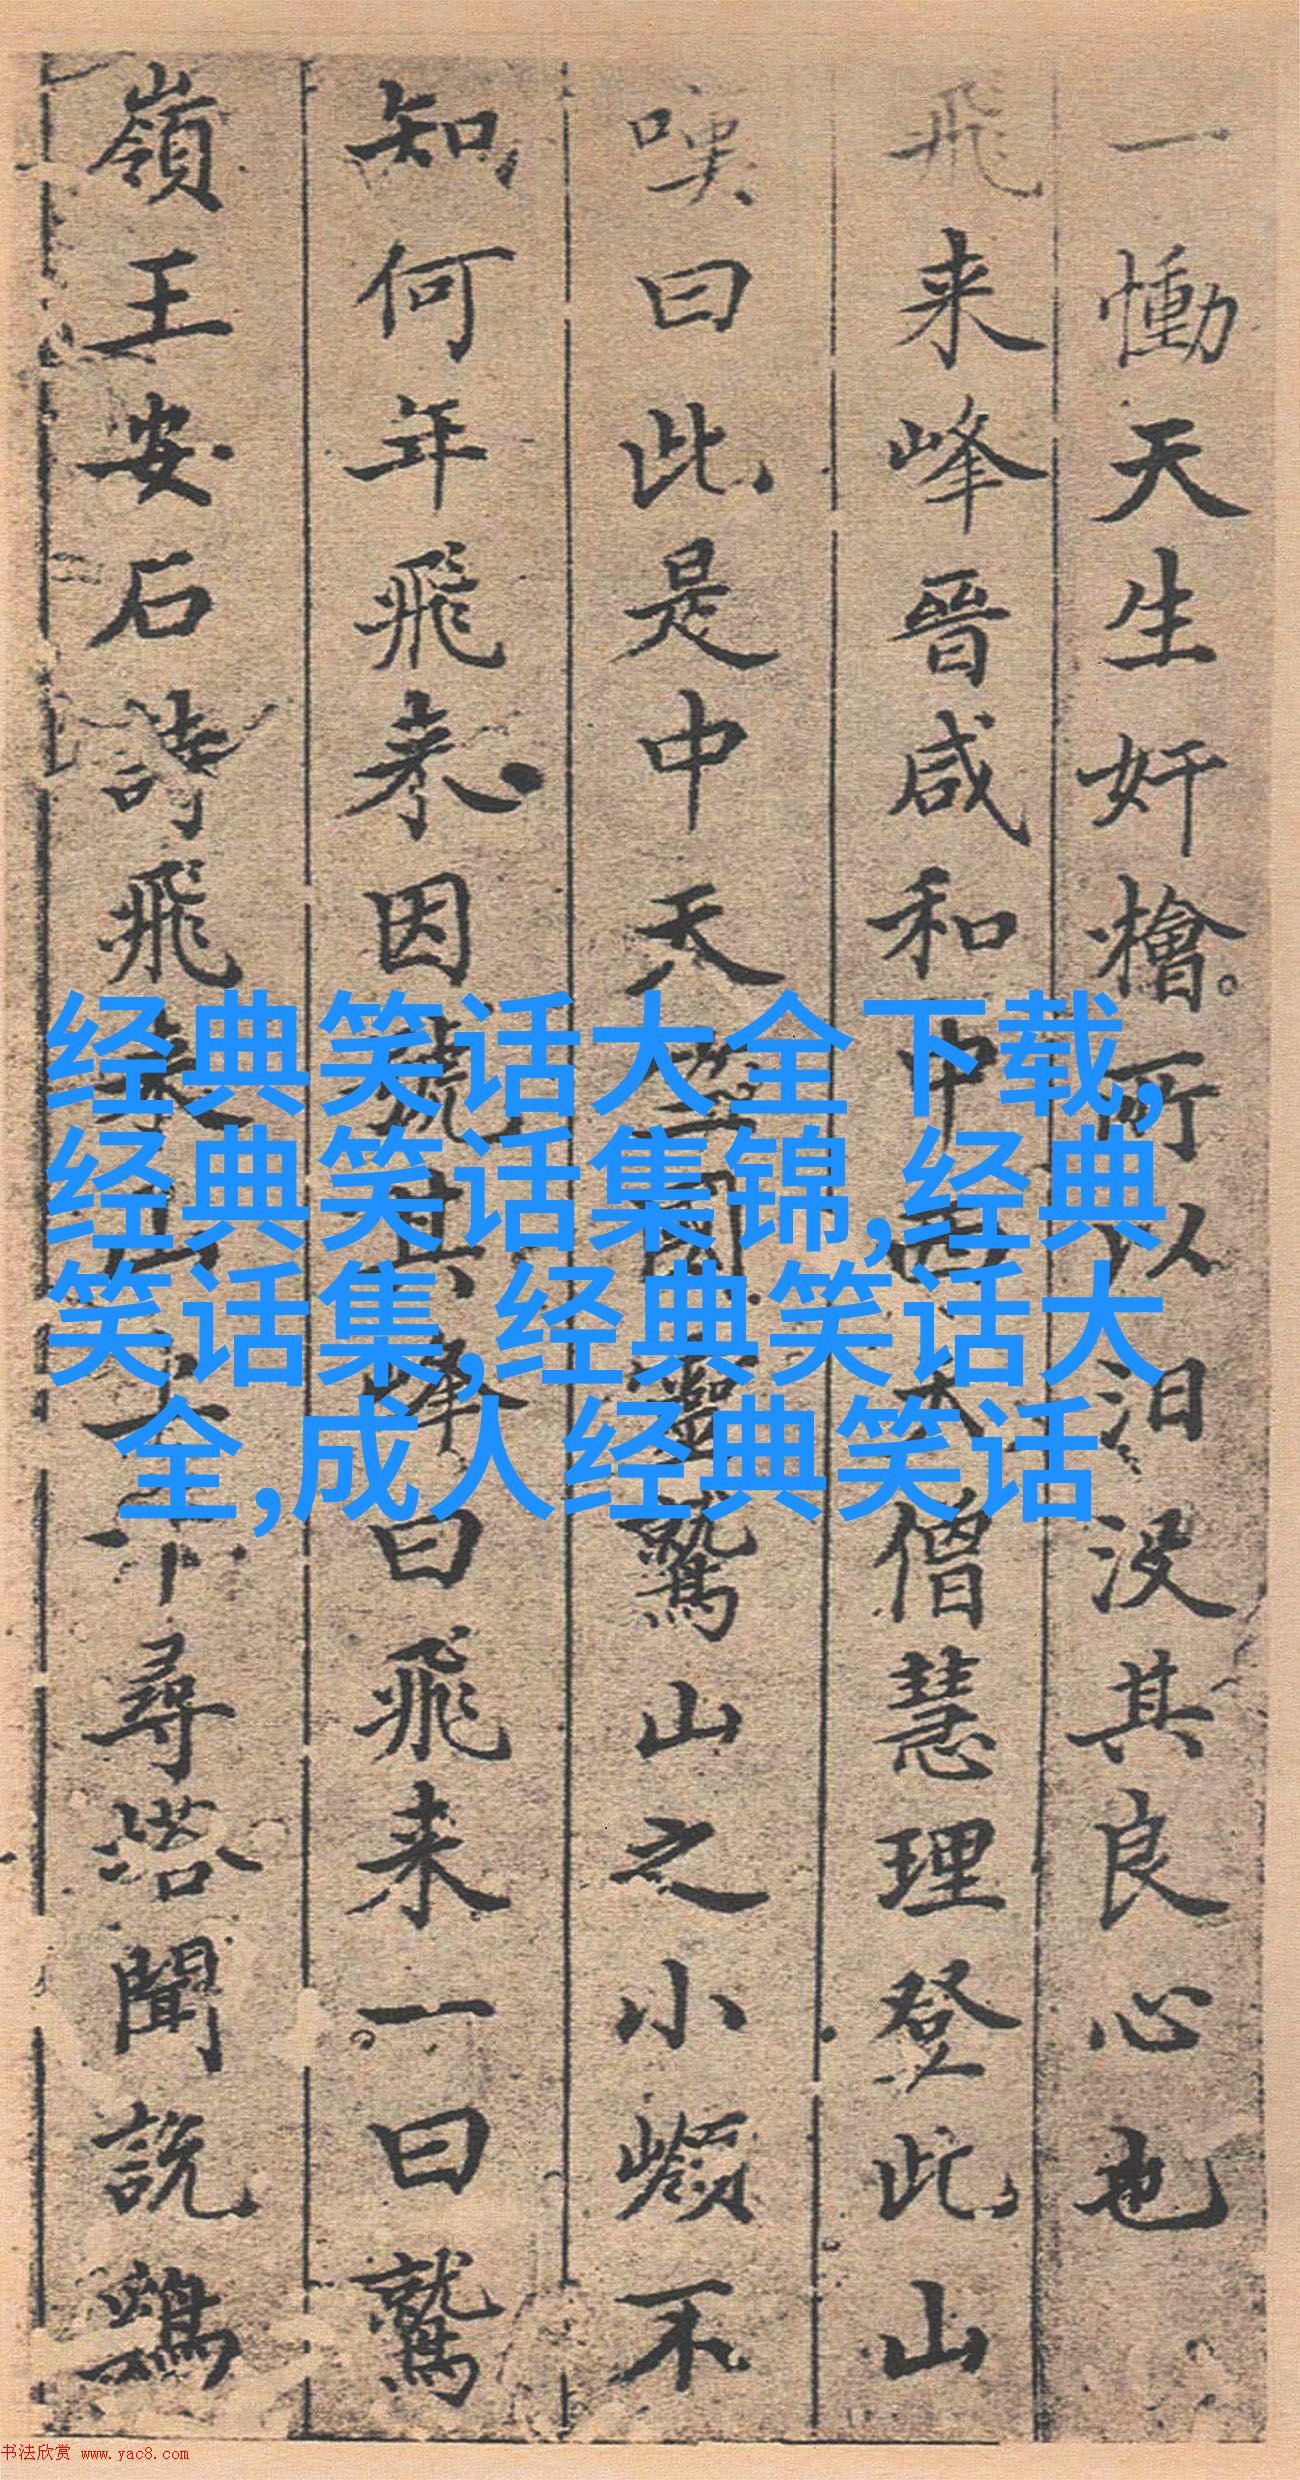 一慟天生奸檜所以汨没其良心也
飛来峰晉咸和中西天僧慧理登此山
嘆曰此是中天竺國靈鷲山之小嶺不
知何年飛来因號其峰曰飛来一曰鷲
嶺王安石詩飛来山上千尋塔聞説鷄
经典笑话大全下载,
经典笑话集锦,经典
笑话集,经典笑话大
全,成人经典笑话
书法欣赏 www.yac8.com